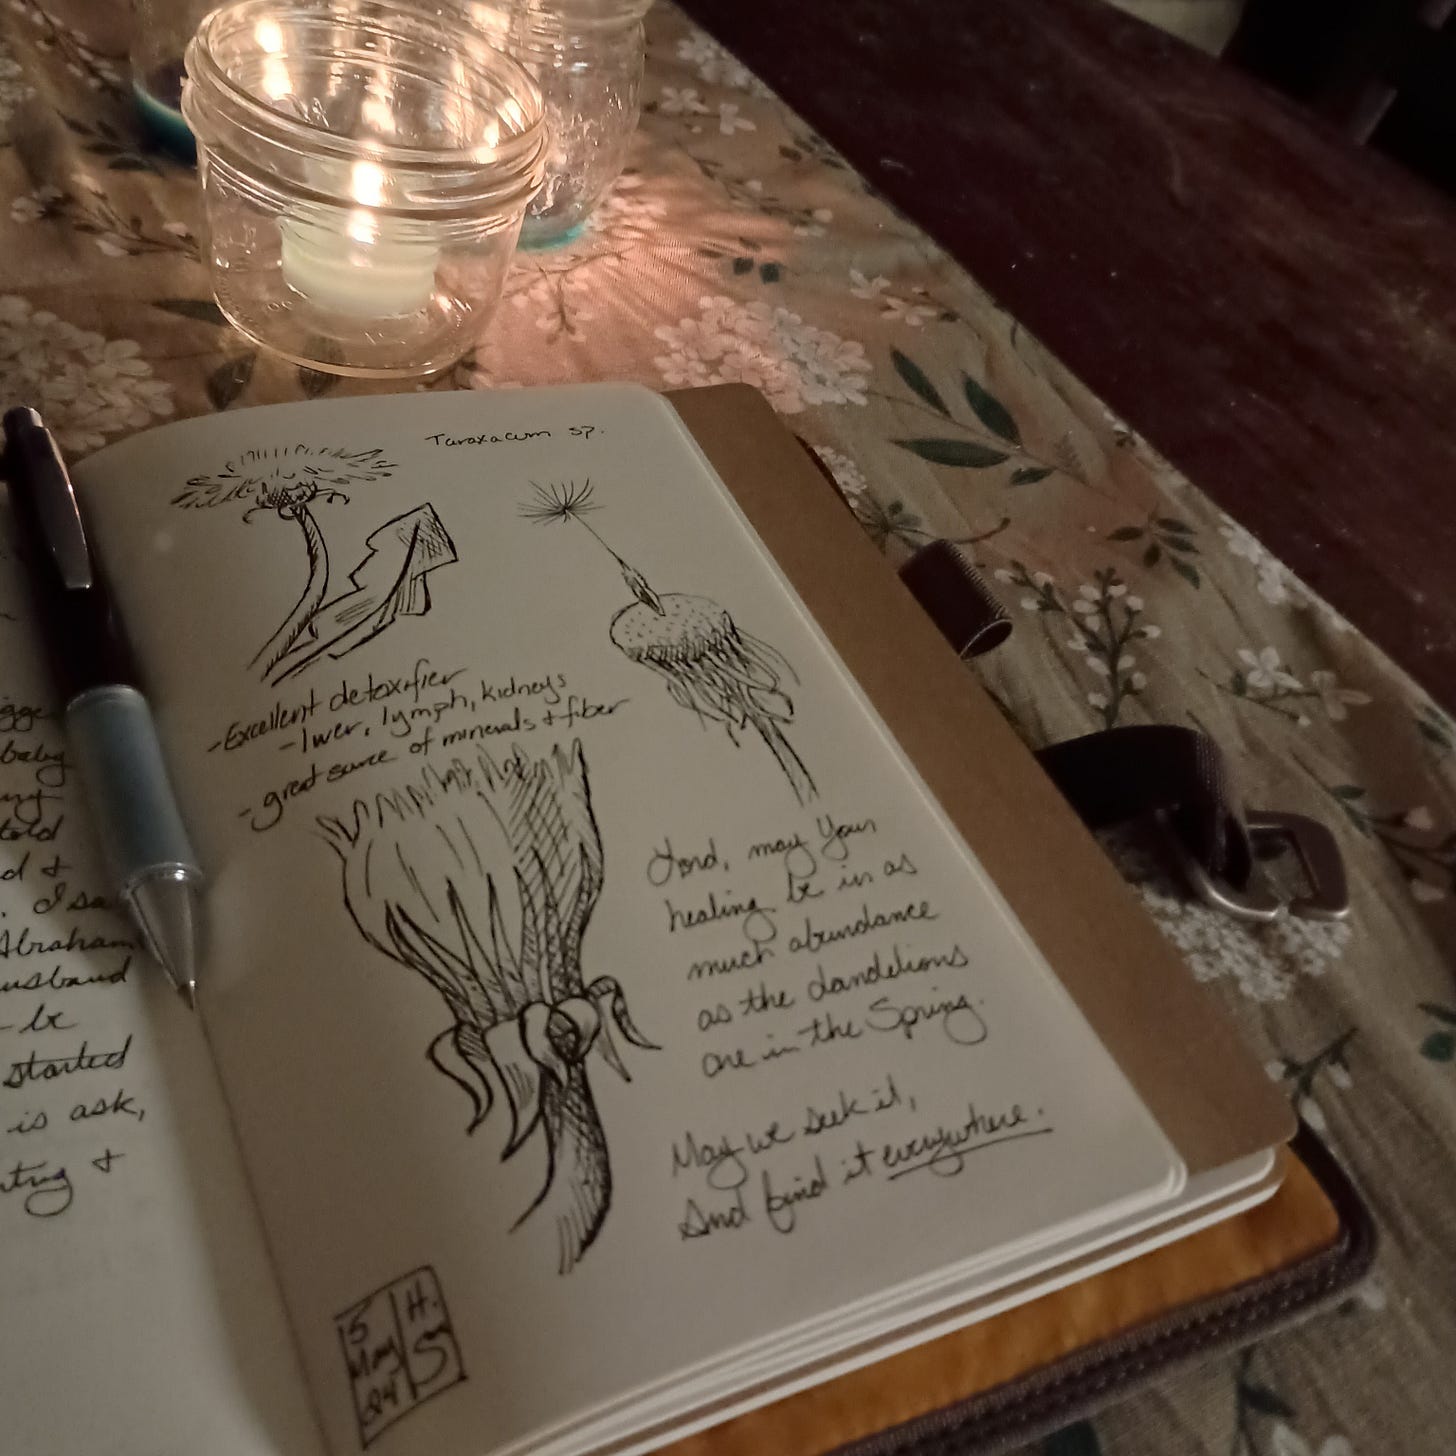 Taraxacum sp.
-Excellent detoxifier
-liver, lymph, kidneys
-great source of minerals & fiber
Lord, may Your
healing be in as
much abundance
as the dandelions
are in the Spring.
May we seek it,
And find it everywhere.
5
May
24
H.
S
baby
told
d &
. I sa
Abraham
husband
- be
started
is ask,
&